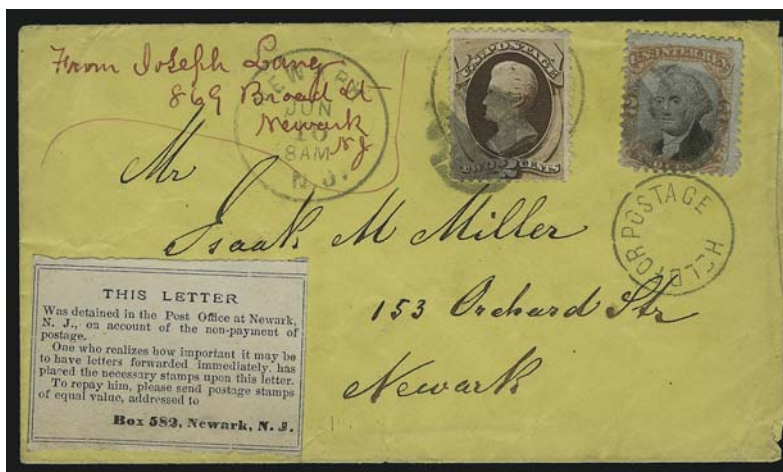 From Joseph Lang
869 Broad St
Newark
NJ
NEWARK
JUN
10
8AM
N.J.
U.S. POSTAGE
TWO 2 CENTS
U.S. INTER. REV.
HELD FOR POSTAGE
Mr
Isaak M Miller
153 Orchard Str
Newark
THIS LETTER
Was detained in the Post Office at Newark,
N. J., on account of the non-payment of
postage.
One who realizes how important it may be
to have letters forwarded immediately, has
placed the necessary stamps upon this letter.
To repay him, please send postage stamps
of equal value, addressed to
Box 582, Newark, N. J.